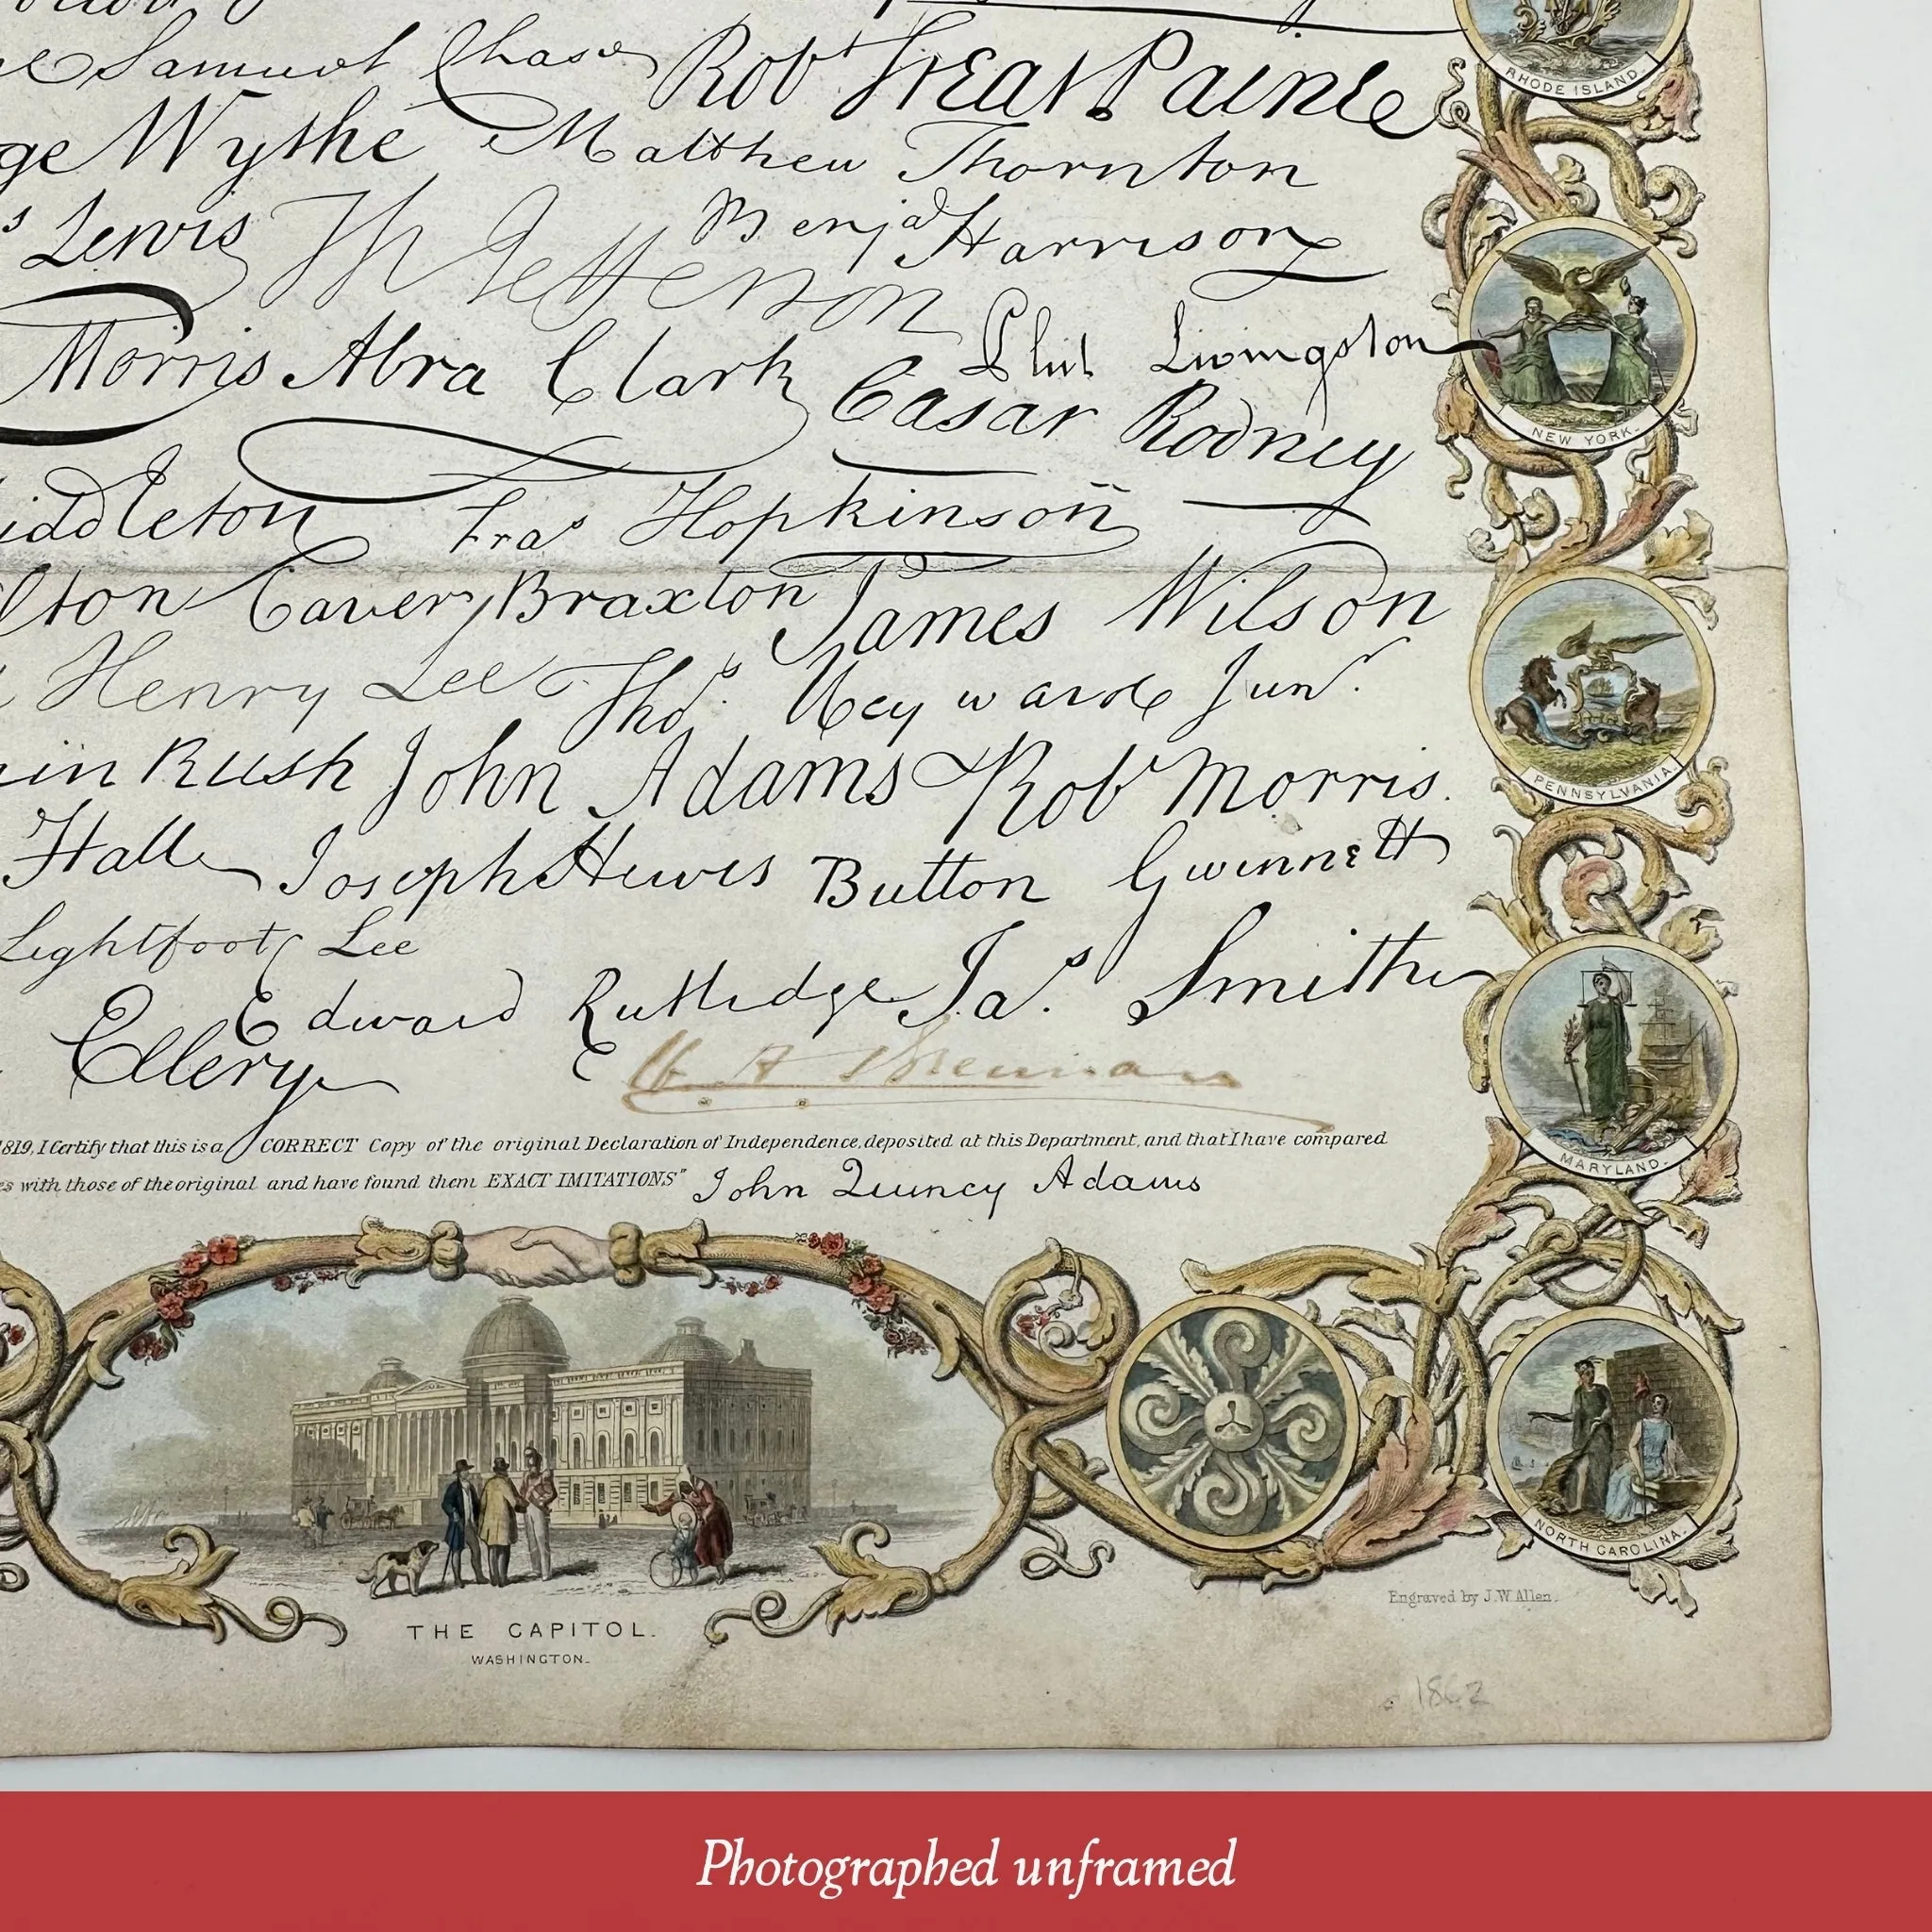 Samuel Chase Robt Treat Paine
RHODE ISLAND.
ge Wythe Matthew Thornton
s Lewis Th Jefferson Benja Harrison
Morris Abra Clark Phil Livingston
NEW YORK.
Casar Rodney
iddleton Fras Hopkinson
lton Carter Braxton James Wilson
Henry Lee Thos. Heyward Junr.
PENNSYLVANIA.
in Rush John Adams Robt Morris.
Hall Joseph Hewes Button Gwinnett
Lightfoot Lee
Edward Rutledge Jas. Smith
Ellery
1819, I Certify that this is a CORRECT Copy of the original Declaration of Independence, deposited at this Department, and that I have compared
MARYLAND.
es with those of the original and have found them EXACT IMITATIONS" John Quincy Adams
NORTH CAROLINA.
Engraved by J.W. Allen.
THE CAPITOL.
WASHINGTON.
1862
Photographed unframed